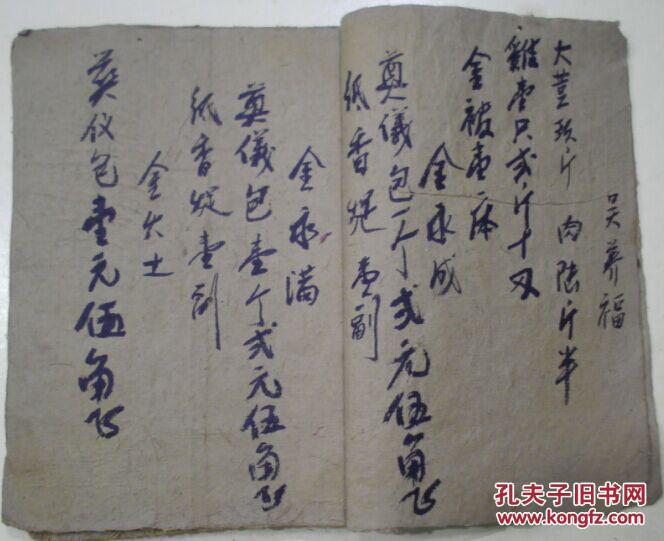 吴养福
大荳玖斤 肉陆斤半
雞壹只弍斤十双
金被壹体
金承成
奠儀包一个弍元伍角正
纸香炷壹副
金承满
奠儀包壹个弍元伍角正
纸香炷壹副
金大士
奠仪包壹元伍角正
孔夫子旧书网
www.kongfz.com